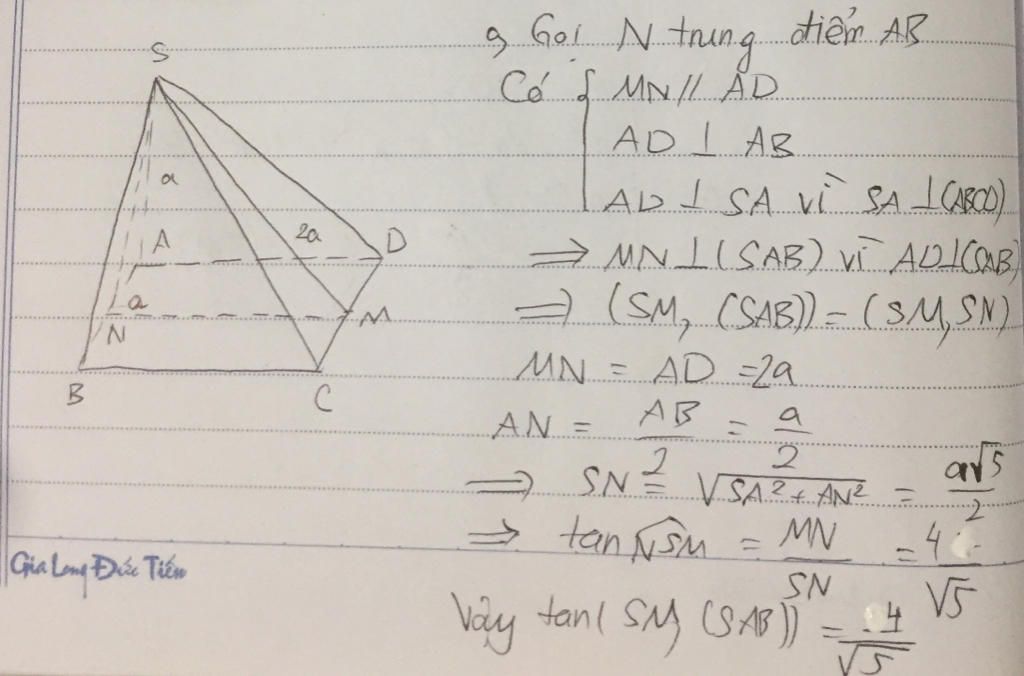 S
a
A
2a
D
a
N
M
B
C
a, Gọi N trung điểm AB
Có { MN // AD
AD ⊥ AB
AD ⊥ SA vì SA ⊥ (ABCD)
⇒ MN ⊥ (SAB) vì AD ⊥ (SAB)
⇒ (SM, (SAB)) = (SM, SN)
MN = AD = 2a
AN = AB/2 = a/2
⇒ SN = √(SA² + AN²) = a√5/2
⇒ tan NSM = MN/SN = 4/√5
Vậy tan(SM, (SAB)) = 4/√5
Gia Long Đức Tiến